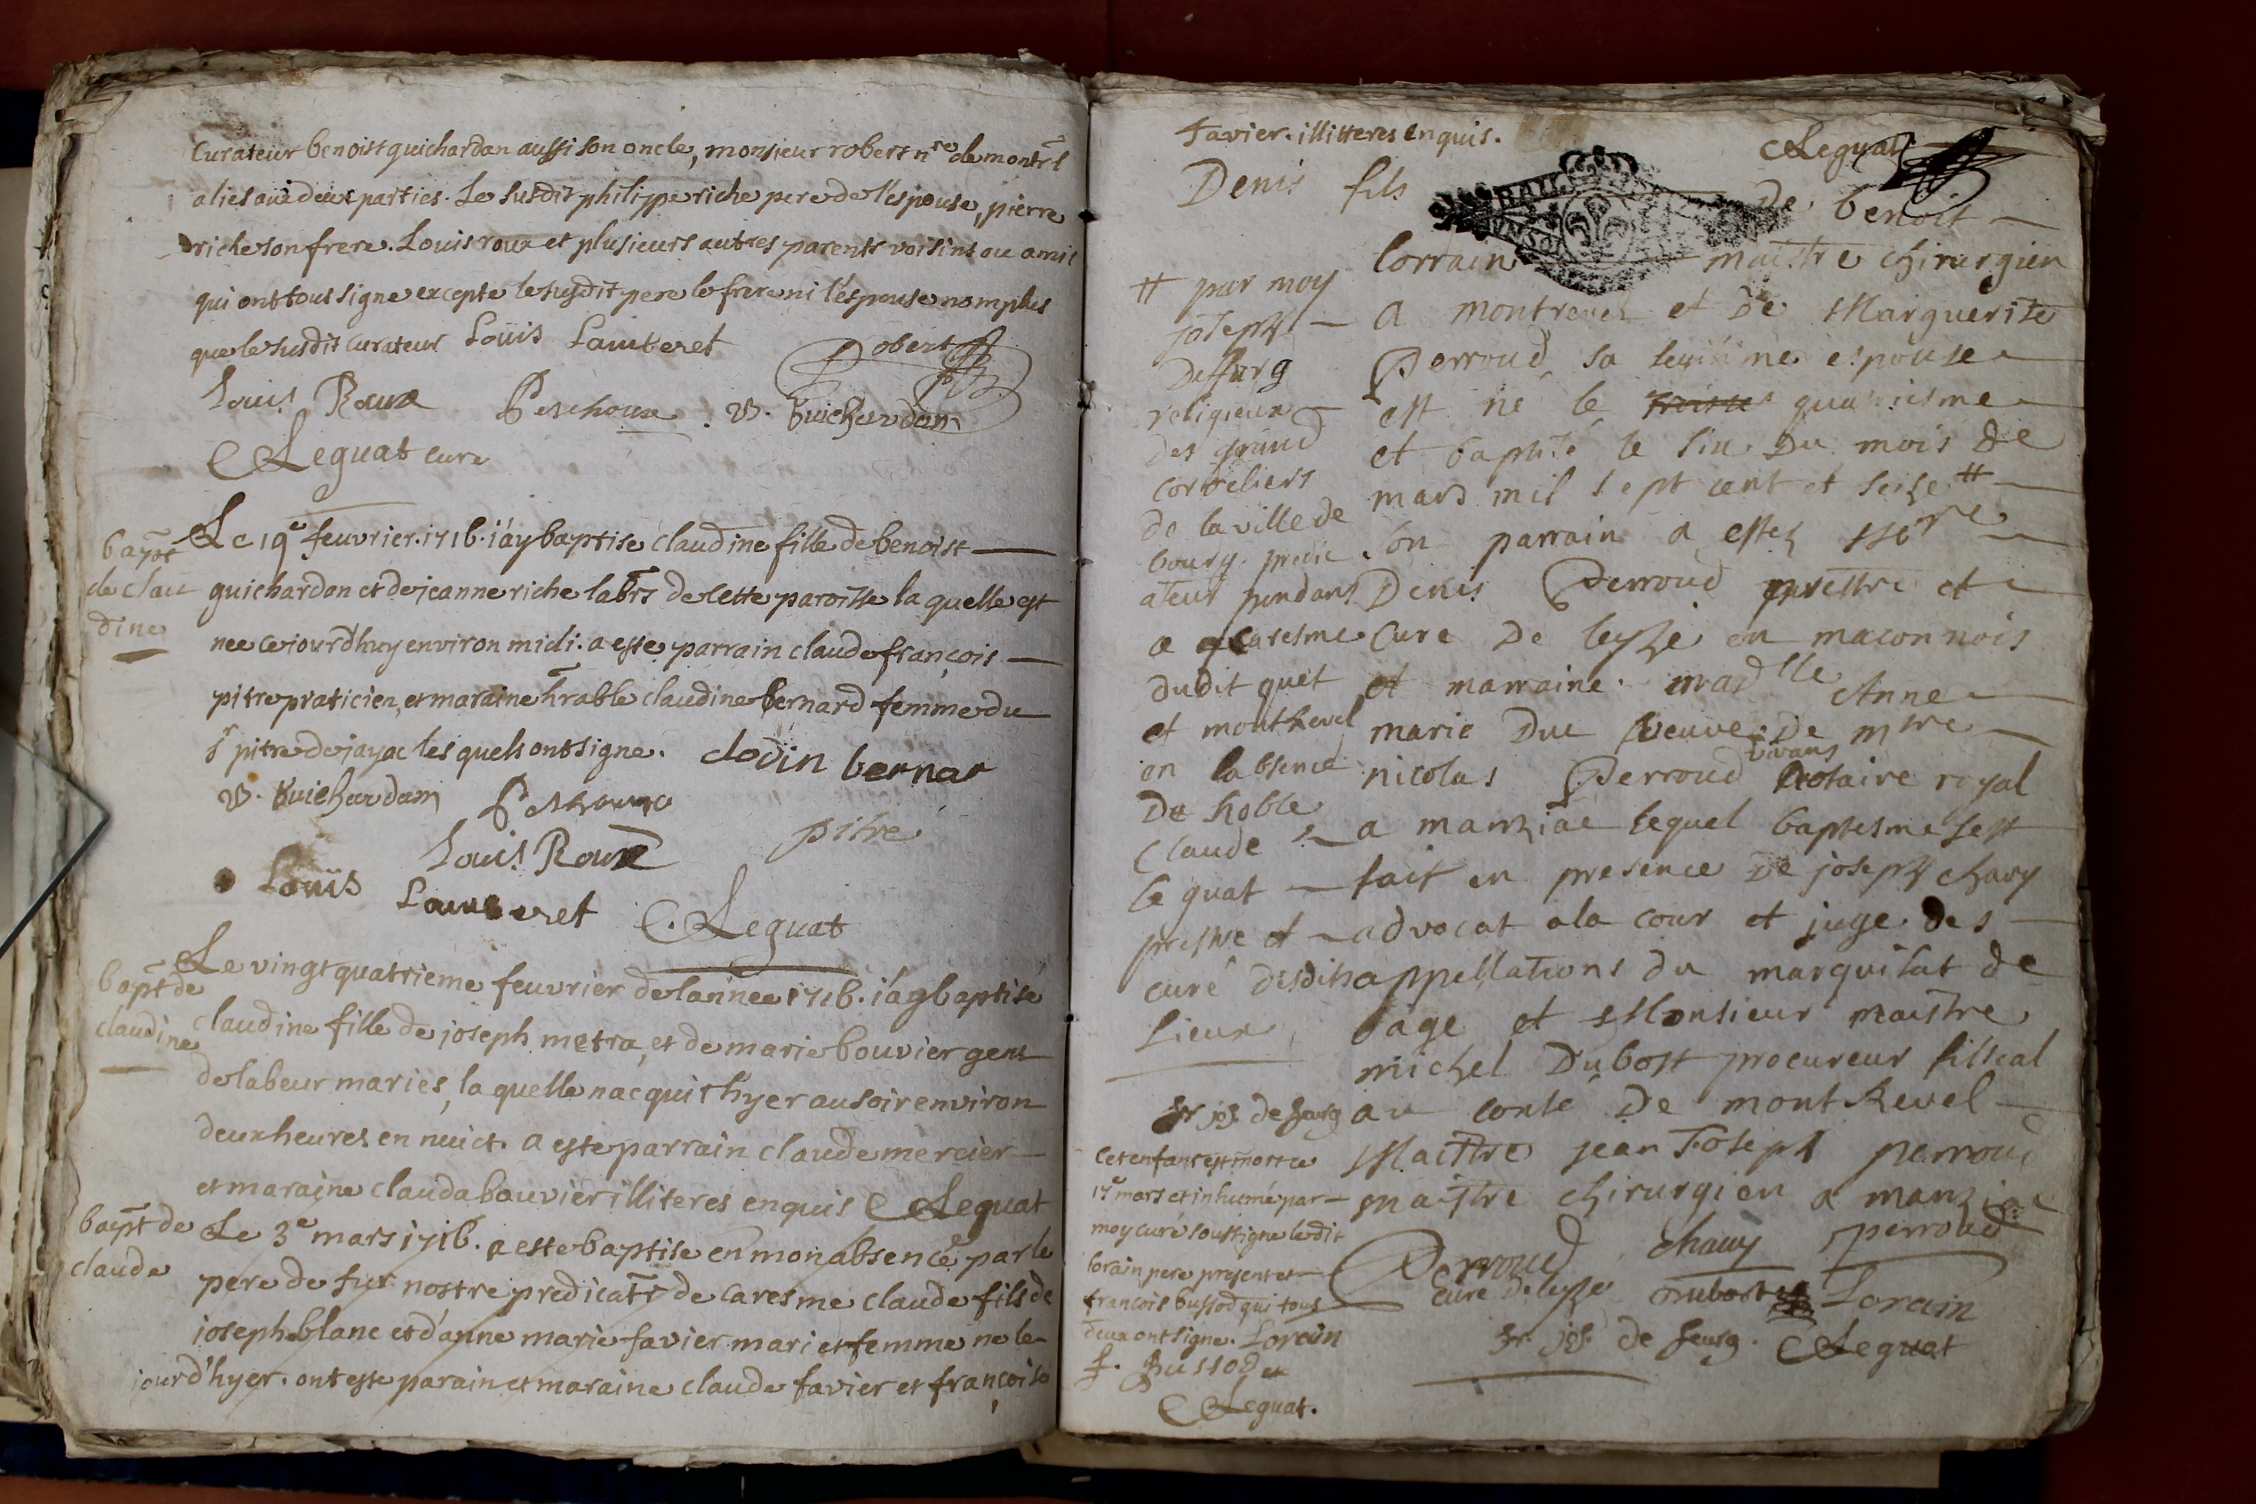 curateur benoist guichardan aussi son oncle, monsieur robert nre de montrel
alies aux deux parties. Le susdit philippe riche pere de l'espouse, pierre
riche son frere. Louis roux et plusieurs autres parents voisins ou amis
qui ont tous signe excepte le susdit pere le frere ni l'espouse nomplus
que le susdit curateur Loüis Lamberet
Robert
Louis Roux Peschoux B. Guichardan
C Leguat cure
bapt
de clau
dine
Le 19e feuvrier. 1716. i'ay baptise claudine fille de benoist
guichardan et de jeanne riche labrs de cette paroisse la quelle est
nee ce jourd'huy environ midi. a este parrain claude françois
pitre praticien, et maraine hrable claudine bernard femme du
sr pitre de jayac les quels ont signe. clodin bernar
B. Guichardan Peschoux
pitre
Louis Roux
Loüis Lamberet C. Leguat
bapt de
claudine
Le vingt quatrieme feuvrier de l'année 1716. i'ay baptisé
claudine fille de joseph metra, et de marie bouvier gens
de labeur maries, la quelle nacquit hyer au soir environ
deux heures en nuict. a este parrain claude mercier
et maraine clauda bouvier illiteres enquis C Leguat
bapt de
claude
Le 3e mars 1716. a este baptise en mon absence par le
pere de furg nostre predicatr de caresme claude fils de
joseph blanc et d'anne marie favier mari et femme ne le
jourd'hyer. ont este parain et maraine claude favier et françoise
favier. illitteres enquis. C Leguat
Denis fils de benoit
lorrain maitre chirurgien
a montrevel et de Marguerite
Perroud sa legitime espouse
est né le troisie quatriesme
et baptisé le six du mois de
mars mil sept cent et seise #
son parrain a estez Mre
Denis Perroud prestre et
curé de leyze en maconnois
et marraine madlle Anne
marie Duc veuve de mtre
nicolas Perroud vivans notaire royal
a manziac lequel baptesme sest
fait en presence de joseph chavy
advocat a la cour et juge des
appellations du marquisat de
bage et Monsieur maistre
michel Dubost procureur fiscal
au conté de montRevel
Maittre jean Joseph perroud
maistre chirurgien a manziac
Perroud chavy perroud
curé de leyze Dubost Lorain
fr jos. de furg. C Leguat
# par moy
joseph
Deffurg
religieux
des grand
cordeliers
de la ville de
bourg predic
ateur pendans
a caresme
dudit quet
et montRevel
en labsence
De noble
Claude
le guat
prestre et
curé desdits
lieux
fr jos. de furg
cet enfant est mort ce
17e mars et inhumé par
moy curé soussigne ledit
lorain pere present et
francois bussod qui tous
deux ont signe. Lorain
f. Bussod
C Leguat.